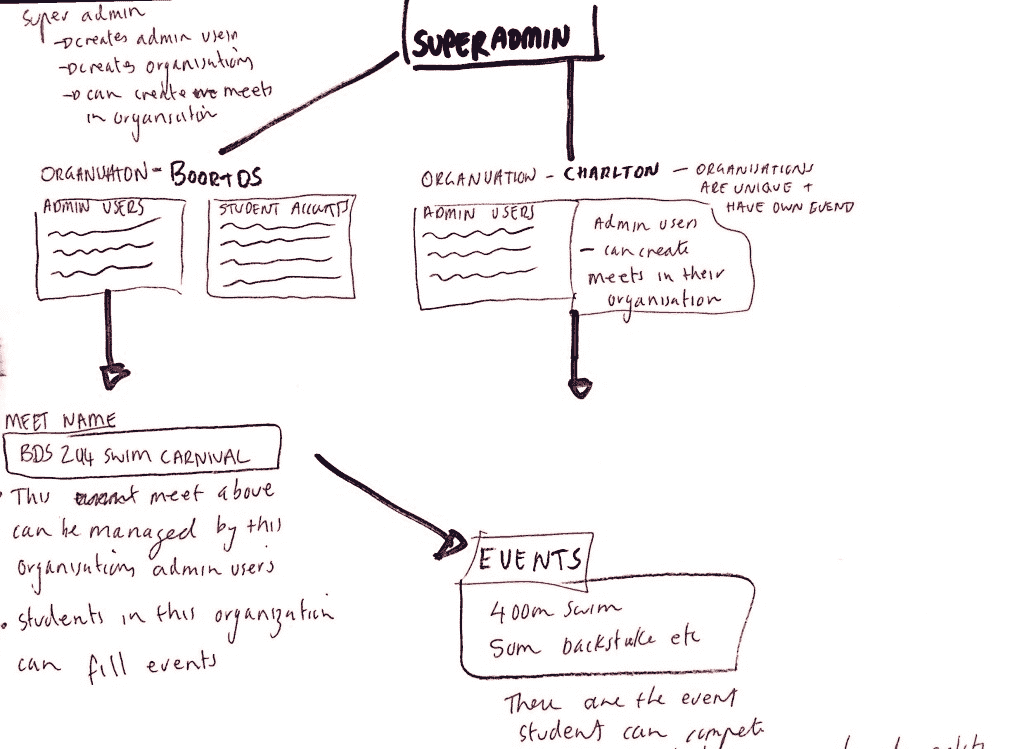 Super admin
creates admin users
creates organisations
can create meets
in organisation
SUPERADMIN
ORGANISATION - BOORT DS
ADMIN USERS
STUDENT ACCOUNTS
ORGANISATION - CHARLTON - ORGANISATIONS
ARE UNIQUE +
HAVE OWN EVENT
ADMIN USERS
Admin users
- can create
meets in their
organisation
MEET NAME
BDS 244 SWIM CARNIVAL
• This meet above
can be managed by this
organisations admin users
• Students in this organization
can fill events
EVENTS
400m swim
50m backstroke etc
These are the event
student can compete